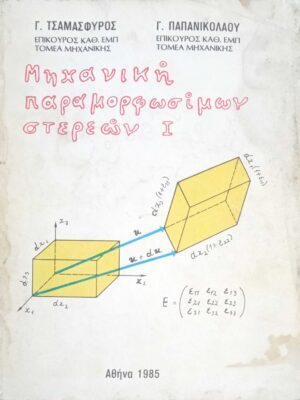 Γ. ΤΣΑΜΑΣΦΥΡΟΣ
ΕΠΙΚΟΥΡΟΣ ΚΑΘ. ΕΜΠ
ΤΟΜΕΑ ΜΗΧΑΝΙΚΗΣ
Γ. ΠΑΠΑΝΙΚΟΛΑΟΥ
ΕΠΙΚΟΥΡΟΣ ΚΑΘ. ΕΜΠ
ΤΟΜΕΑ ΜΗΧΑΝΙΚΗΣ
Μηχανική
παραμορφωσίμων
στερεών Ι
dx₂(1+ε₂₂)
x₃
u
u + du
dx₁
dx₃
dx₂
x₁
E = (ε₁₁ ε₁₂ ε₁₃
ε₂₁ ε₂₂ ε₂₃
ε₃₁ ε₃₂ ε₃₃)
Αθήνα 1985